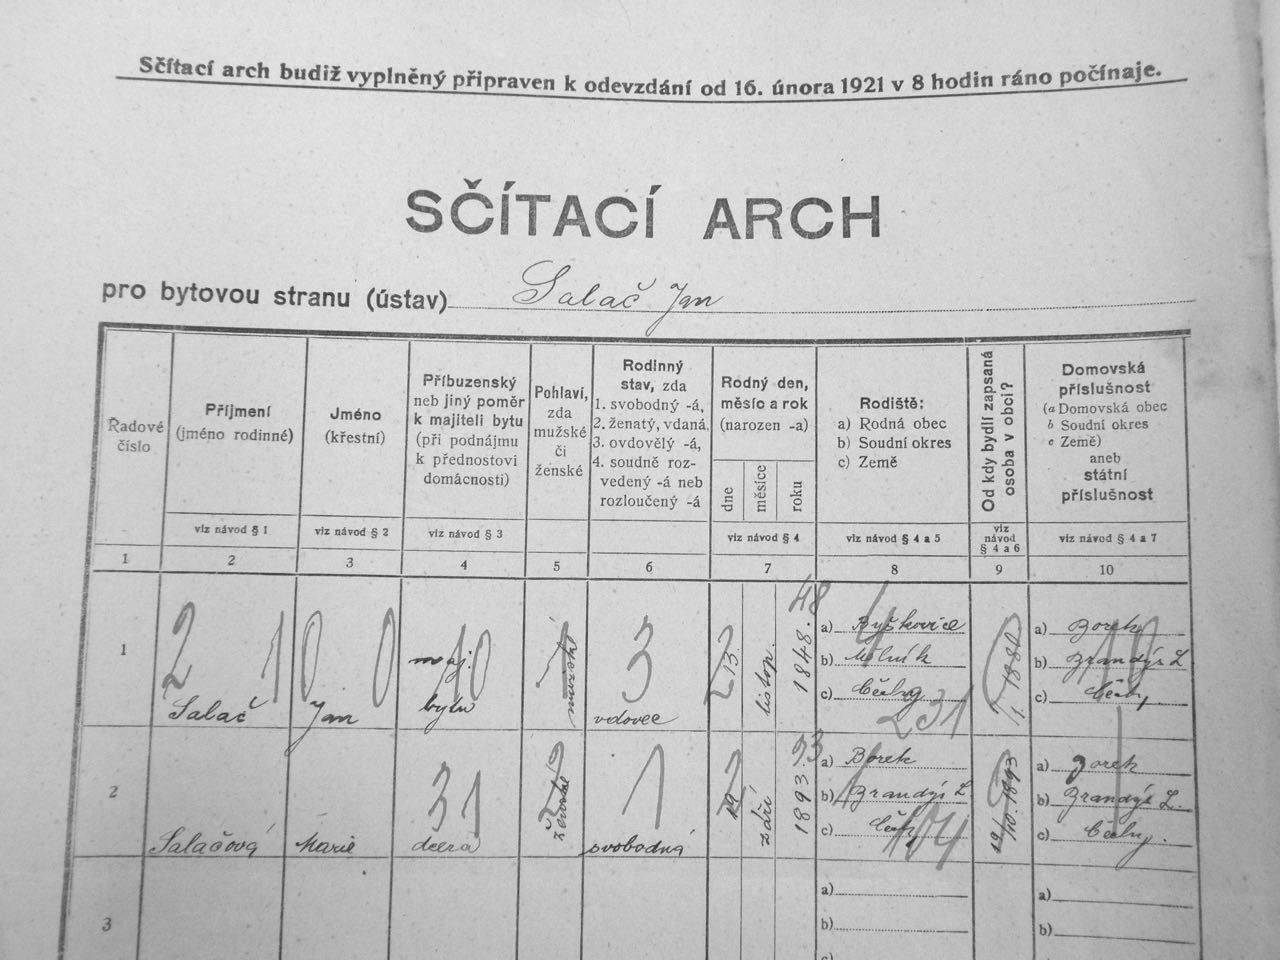 Sčítací arch budiž vyplněný připraven k odevzdání od 16. února 1921 v 8 hodin ráno počínaje.
SČÍTACÍ ARCH
pro bytovou stranu (ústav) Salač Jan
Řadové číslo
Příjmení
(jméno rodinné)
viz návod § 1
Jméno
(křestní)
viz návod § 2
Příbuzenský
neb jiný poměr
k majiteli bytu
(při podnájmu
k přednostovi
domácnosti)
viz návod § 3
Pohlaví,
zda
mužské
či
ženské
Rodinný
stav, zda
1. svobodný -á,
2. ženatý, vdaná,
3. ovdovělý -á,
4. soudně roz-
vedený -á neb
rozloučený -á
Rodný den,
měsíc a rok
(narozen -a)
dne
měsíce
roku
viz návod § 4
Rodiště:
a) Rodná obec
b) Soudní okres
c) Země
viz návod § 4 a 5
Od kdy bydlí zapsaná
osoba v obci?
viz
návod
§ 4 a 6
Domovská
příslušnost
(a Domovská obec
b Soudní okres
c Země)
aneb
státní
příslušnost
viz návod § 4 a 7
1 2 3 4 5 6 7 8 9 10
1
2 1 0 0
Salač
Jan
maj.
bytu
10
mužské
3
vdovec
13
listop.
1848.
48
a) Byškovice
b) Mělník
c) Čechy
231
1880
a) Borek
b) Brandýs L
c) Čechy
2
Salačová
Marie
31
dcera
ženské
1
svobodná
září
1893
93
a) Borek
b) Brandýs L
c) Čechy
104
19/10 1893
a) Borek
b) Brandýs L.
c) Čechy.
3
a)
b)
c)
a)
b)